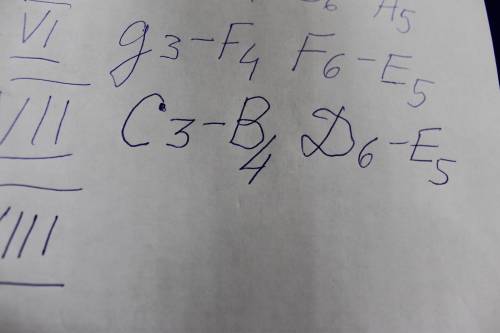 A5
VI g3-F4 F6-E5
VII C3-B4 D6-E5
VIII